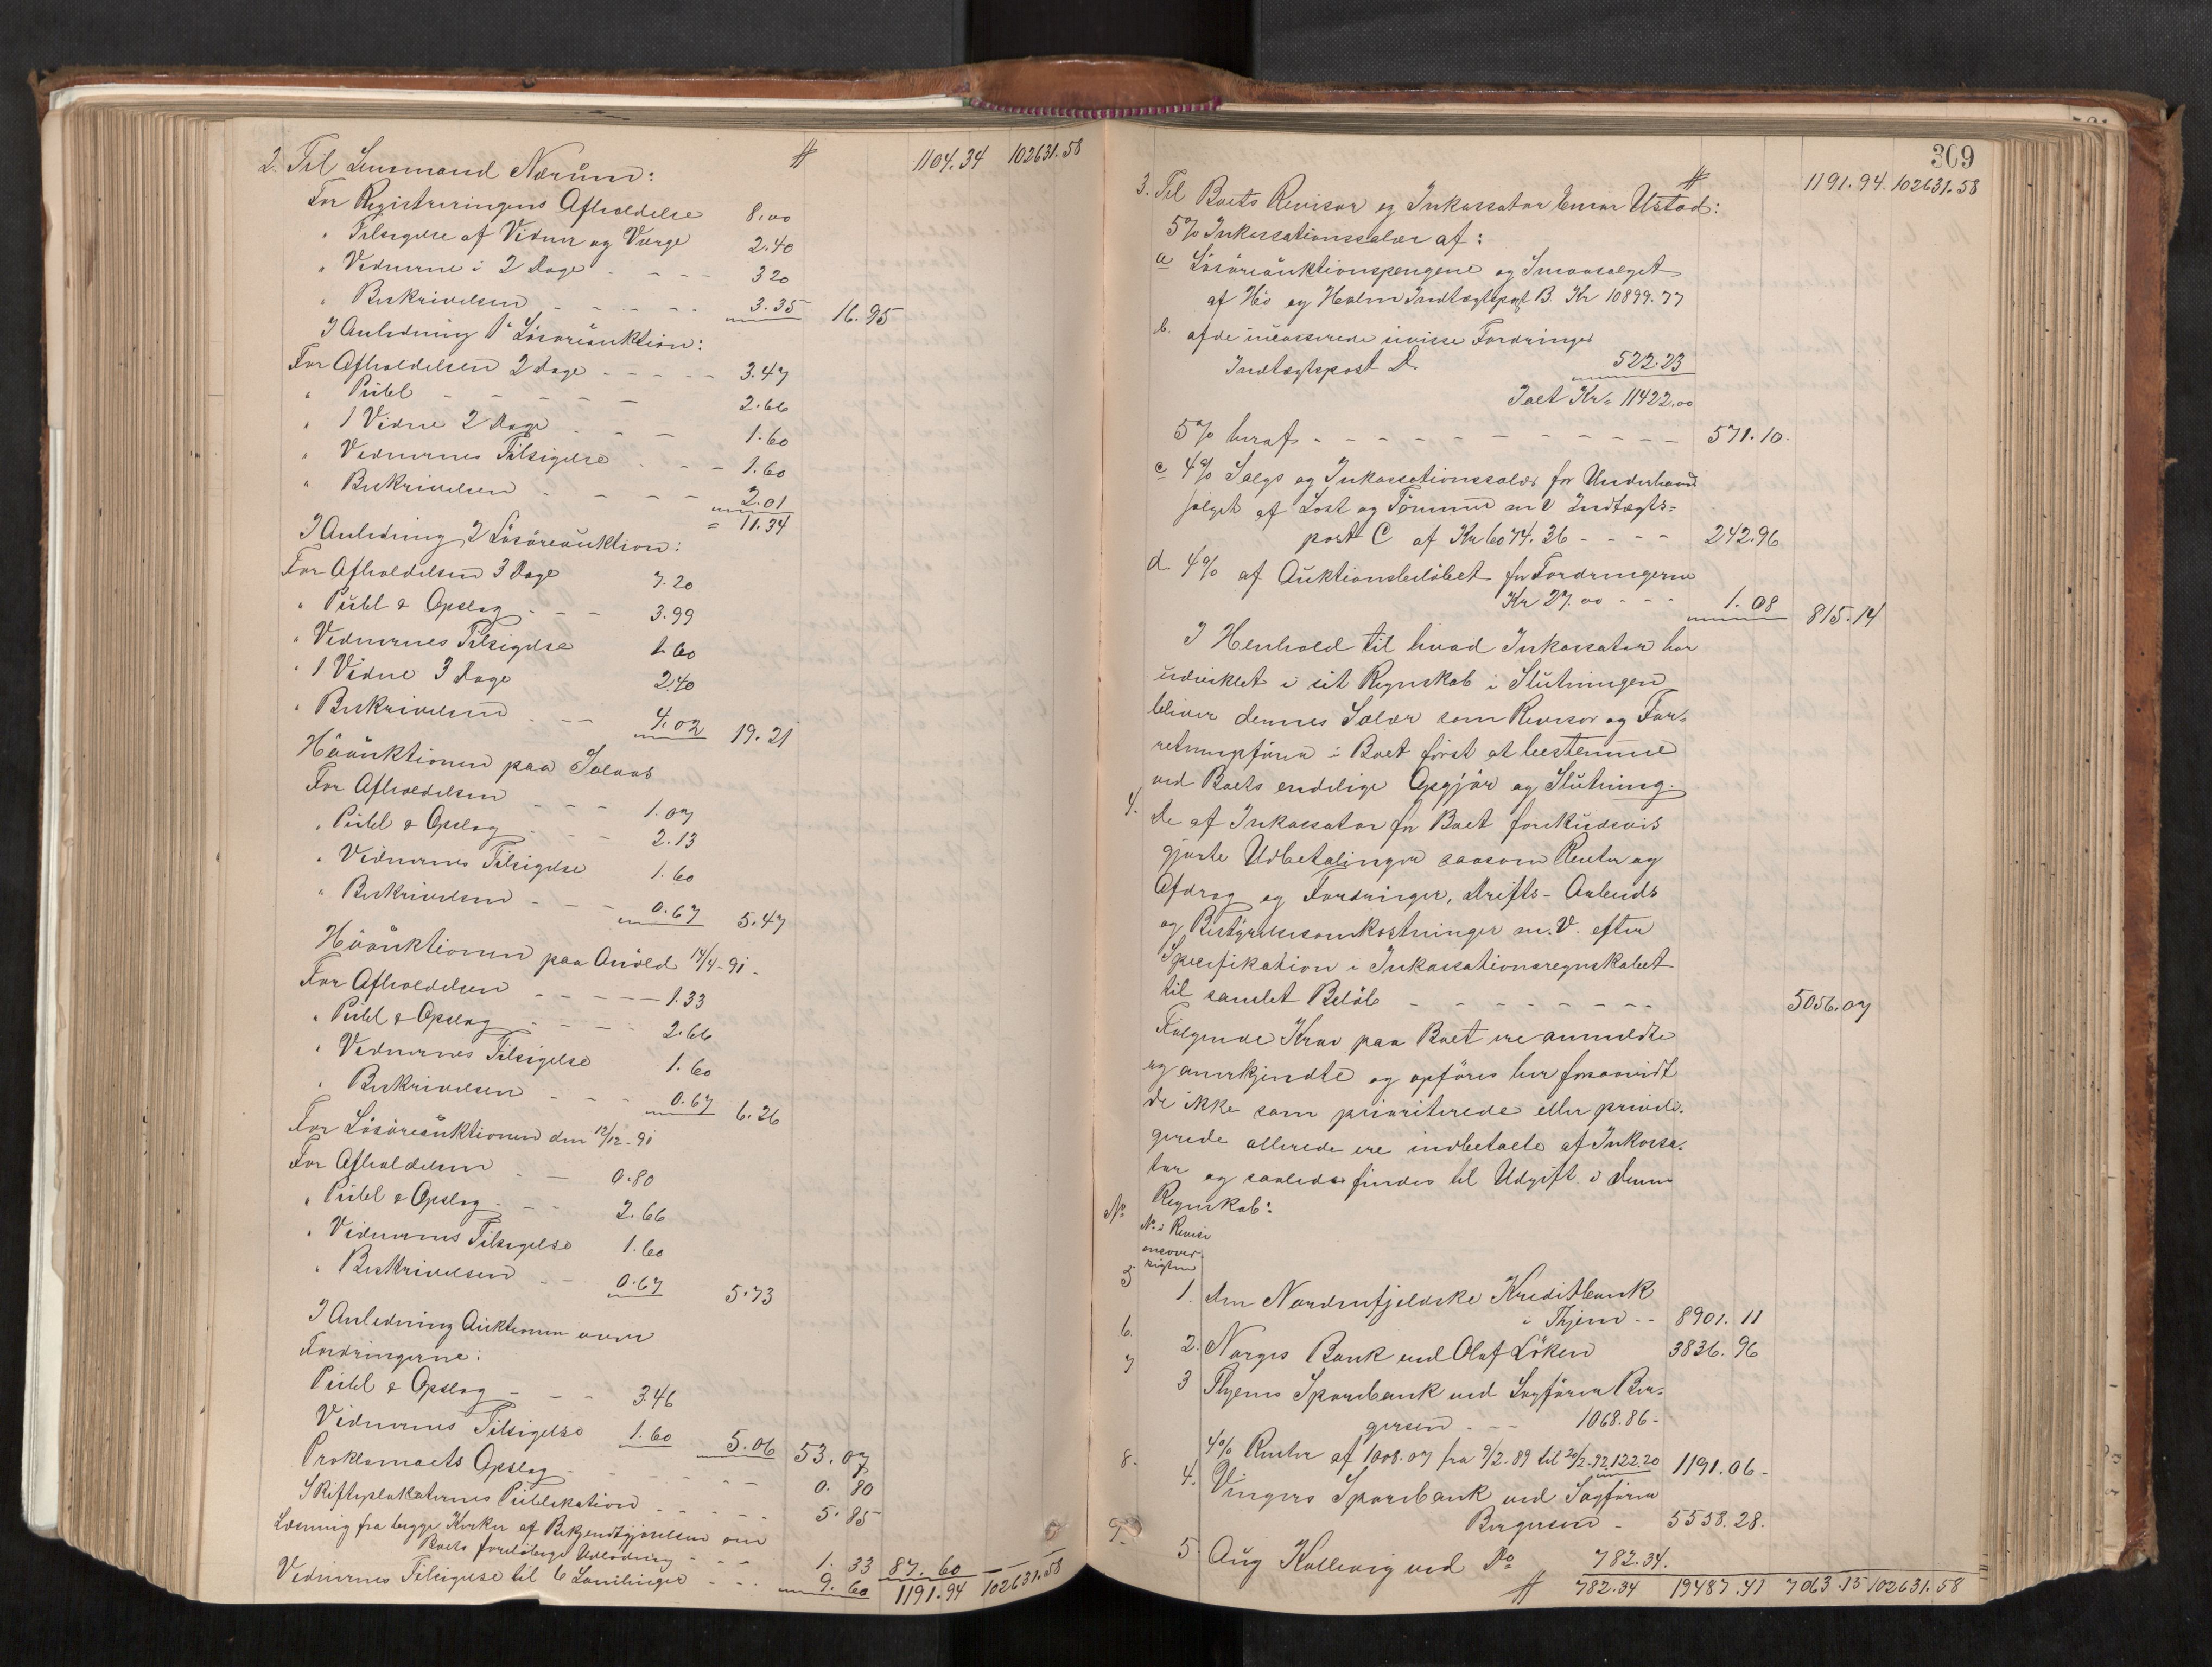 2. Til Lensmand Nærum: # 1104.34 102631.58
For Registreringens Afholdelse 8.00
" Tilsigelse af Vidner og Værge 2.40
" Vidnerne i 2 Dage - - - - 3 20
" Beskrivelsen - - - - - - 3.35 16.95
I Anledning 1ᵉ Løsøreauktion:
For Afholdelsen 2 Dage - - - - - 3.47
" Publ - - - - - - 2.66
" 1 Vidne 2 Dage - - - 1.60
" Vidnernes Tilsigelse - - - 1.60
" Beskrivelsen - - - - - 2.01
= 11.34
I Anledning 2 Løsøreauktion:
For Afholdelsen 3 Dage 7.20
" Publ & Opslag - - - 3.99
" Vidnernes Tilsigelse 1.60
" 1 Vidne 3 Dage 2.40
" Beskrivelsen - - - 4.02 19.21
Høauktionen paa
For Afholdelsen - - - 1.07
" Publ & Opslag - - - 2.13
" Vidnernes Tilsigelse 1.60
" Beskrivelsen - - - 0.67 5.47
Høauktionen paa 14/4-91 -
For Afholdelsen - - - - - 1.33
" Publ & Opslag - - - - 2.66
" Vidnernes Tilsigelse 1.60
" Beskrivelsen - - - 0.67 6.26
For Løsøreauktionen den 12/12-91
For Afholdelsen - - 0.80
" Publ & Opslag - - - 2.66
" Vidnernes Tilsigelse 1.60
" Beskrivelsen - - 0.67 5.73
I Anledning Auktionen over
Fordringerne:
Publ & Opslag - - - 3.46
Vidnernes Tilsigelse 1.60 5.06 53.07
Proklamaets Opslag - - - - - - 0.80
Skifteplakaternes Publikation - - - - 5.85
Læsning fra begge Kirker af Bekjendtgjørelsen om
Boets foreløbige Udlodning - - - 1.33 87.60 - -
Vidnernes Tilsigelse til 6 Samlinger - - - 9.60 1191.94 102631.58
309
# 1191.94. 102631.58
3. Til Boets Revisor og Inkassator Einar Ustad:
5% Inkassationssalær af:
a Løsøreauktionspengene og Smaasalget
af Hø og Halm Indtægtspost B. Kr 10899.77
b. af de incasserede uvisse Fordringer
Indtægtspost D. 522.23
Ialt Kr. 11422.00
5% heraf - - - - - - - - - - - - 571.10.
c 4% Salgs og Inkassationssalær for Underhaands
salget af Last og Tømmer m V Indtægts=
post C af Kr 6074.36 - - - - 242.96
d. 4% af Auktionsbeløbet for Fordringerne
Kr 27.00 - - - 1.08 815.14
I Henhold til hvad Inkassator har
udviklet i sit Regnskab i Slutningen
bliver dennes Salær som Revisor og For=
retningsfører i Boet først at bestemme
ved Boets endelige Opgjør og Slutning.
4. De af Inkassator for Boet forskudsvis
gjorte Udbetalinger saasom Renter og
Afdrag og Fordringer, Drifts- Arbeids
og Bestyrelsesomkostninger m. V. efter
Specifikation i Inkassationsregnskabet
til samlet Beløb - - - - - - - - 5056.07
Følgende Krav paa Boet ere anmeldte
og anerkjendte og opføres her forsaavidt
de ikke som prioriterede eller privile-
gerede allerede ere indbetalte af Inkassa-
tor og saaledes findes til Udgift i denne
Regnskab:
No No i Revisi
onsover
sigten
5 1. Den Nordenfjeldske Kreditbank
i Thjem - - 8901.11
6. 2. Norges Bank ved Olaf Løken 3836.96
7 3 Thjems Sparebank ved Sagfører Bir-
gersen - - - 1068.86-
4% Renter af 1008.07 fra 9/2-89 til 20/2-92 122.20 1191.06-
8. 4. Vingers Sparebank ved Sagfører
Birgersen - 5558.28.
9. 5 Aug Kallevig ved Do 782.34.
# 782.34 19487.41 7063.15 102631.58